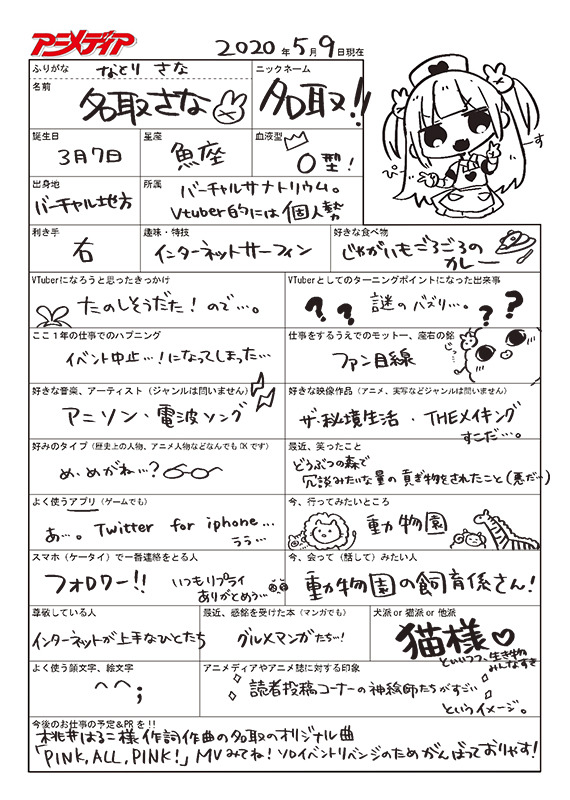 アニメディア
2020年5月9日現在
ふりがな なとり さな
ニックネーム
名前 名取さな
名取!!
誕生日
星座
血液型
3月7日
魚座
O型!
出身地
所属
バーチャル地方
バーチャルサナトリウム。
Vtuber的には個人勢
利き手
趣味・特技
好きな食べ物
右
インターネットサーフィン
じゃがいもごろごろの
カレー
VTuberになろうと思ったきっかけ
VTuberとしてのターニングポイントになった出来事
たのしそうだた!ので…。
?? 謎のバズリ…。??
ここ1年の仕事でのハプニング
仕事をするうえでのモットー、座右の銘
イベント中止…!になってしまった…
ファン目線
じっ…
好きな音楽、アーティスト(ジャンルは問いません)
好きな映像作品(アニメ、実写などジャンルは問いません)
アニソン・電波ソング
ザ・秘境生活・THEメイキング
すこだ…。
好みのタイプ(歴史上の人物、アニメ人物などなんでもOKです)
最近、笑ったこと
め、めがね…?
どうぶつの森で
冗談みたいな量の貢ぎ物をされたこと(悪だ…)
よく使うアプリ(ゲームでも)
今、行ってみたいところ
あ…。Twitter for iphone…
うぅ…
動物園
スマホ(ケータイ)で一番連絡をとる人
今、会って(話して)みたい人
フォロワー!!
いつもリプライ
ありがとめぅ…
動物園の飼育係さん!
尊敬している人
最近、感銘を受けた本(マンガでも)
犬派or猫派or他派
インターネットが上手なひとたち
グルメマンガたち…!
猫様♡
といいつつ、生き物
みんなすき
よく使う顔文字、絵文字
アニメディアやアニメ誌に対する印象
^^;
読者投稿コーナーの神絵師たちがすごい
というイメージ。
今後のお仕事の予定&PRを!!
桃井はるこ様作詞作曲の名取のオリジナル曲
「PINK,ALL,PINK!」MVみてね!ソロイベントリベンジのためがんばっておりやす!